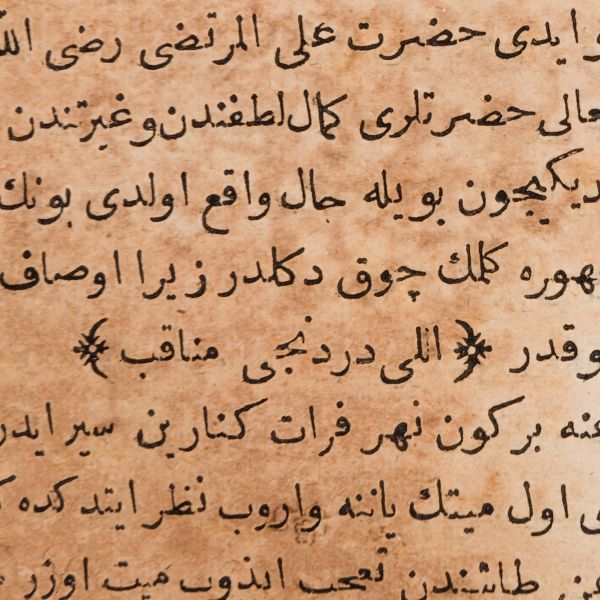 ايدى حضرت على المرتضى رضى الله
تعالى حضرتلرى كمال لطفندن و غيرتندن
ديكيچون بويله حال واقع اولدى بونك
ظهوره كلمك چوق دكلدر زيرا اوصاف
وقدر ﴿ اللى دردنجى مناقب ﴾
عنه بر كون نهر فرات كنارين سير ايدر
اول ميتك ياننه واروب نظر ايتدكده
طاشندن تعجب ايدوب ميت اوزر